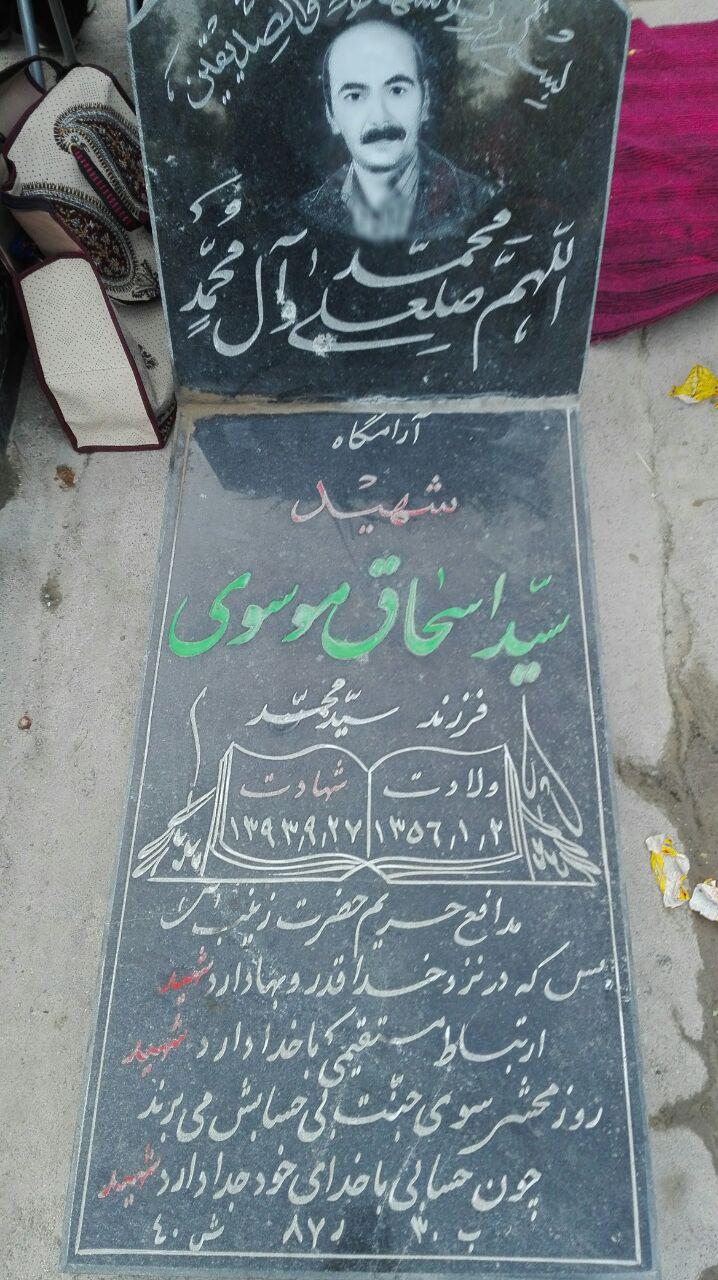 بسم رب الشهداء والصدیقین
اللهم صل علی محمد وآل محمد
و
آرامگاه
شهید
سید اسحاق موسوی
فرزند سید محمد
ولادت شهادت
۱۳۵۶٫۱٫۲ ۱۳۹۳٫۹٫۲۷
مدافع حریم حضرت زینب س
بس که در نزد خدا قدر و بها دارد شهید
ارتباط مستقیمی با خدا دارد شهید
روز محشر سوی جنت بی حسابش می برند
چون حسابی با خدای خود جدا دارد شهید
ب ۳۰ ر ۸۷ ش ۴۰